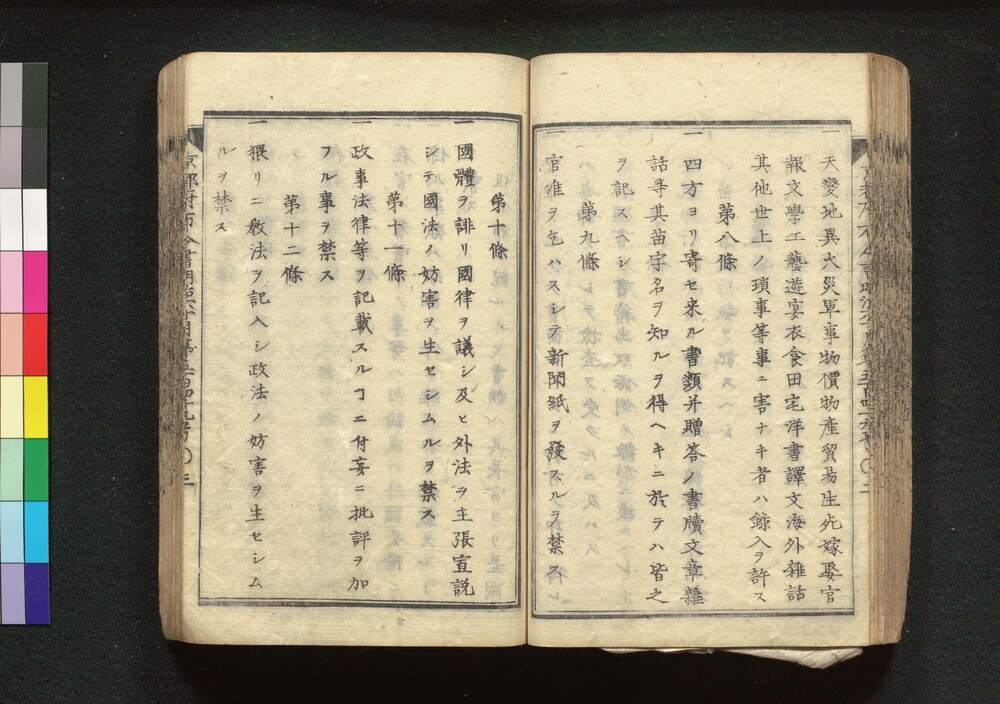 一天變地異火災軍事物價物産貿易生死嫁娶官
報文學工藝遊宴衣食田宅洋書譯文海外雜話
其他世上ノ瑣事等事ニ害ナキ者ハ錄入ヲ許ス
第八條
一四方ヨリ寄セ来ル書類并贈答ノ書牘文章雜
話等其苗字名ヲ知ルヲ得ヘキニ於テハ皆之
ヲ記スヘシ
第九條
一官准ヲ乞ハスシテ新聞紙ヲ發スルヲ禁ス
第十條
一國體ヲ誹リ國律ヲ議シ及ヒ外法ヲ主張宣説
シテ國法ノ妨害ヲ生セシムルヲ禁ス
第十一條
一政事法律等ヲ記載スルヿニ付妄ニ批評ヲ加
フル事ヲ禁ス
第十二條
一猥リニ教法ヲ記入シ政法ノ妨害ヲ生セシム
ルヲ禁ス
京都府